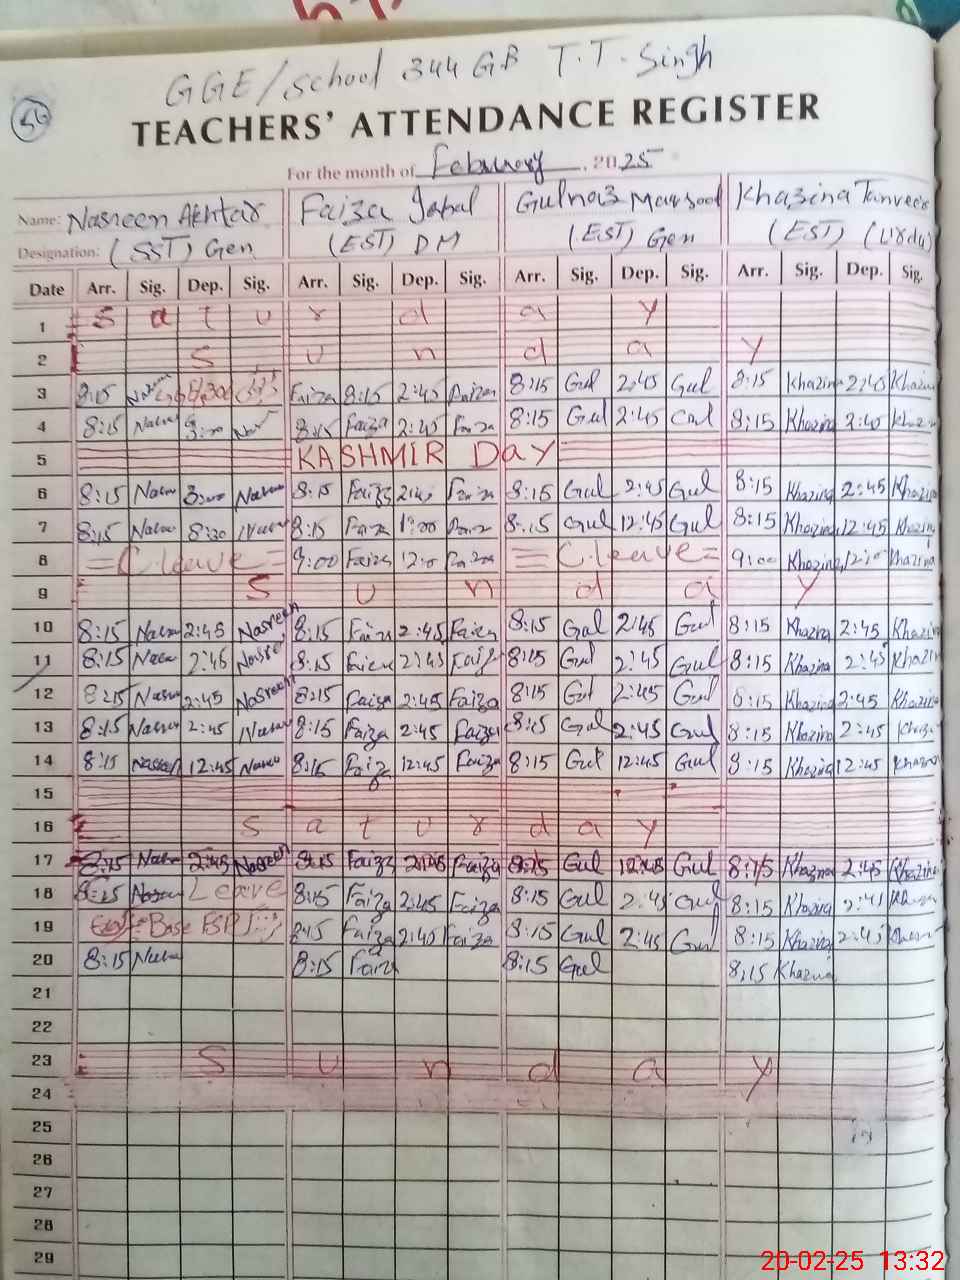 GGE/school 344 GB T.T.Singh
56
TEACHERS' ATTENDANCE REGISTER
For the month of February, 2025
Name: Nasreen Akhtar Faiza Iqbal Gulnaz Maqsood Khazina Tanveer
Designation: (SST) Gen (EST) DM (EST) Gen (EST) (Urdu)
Date Arr. Sig. Dep. Sig. Arr. Sig. Dep. Sig. Arr. Sig. Dep. Sig. Arr. Sig. Dep. Sig.
1 S a t u r d a y
2 S u n d a y
3 8:15 Faiza 8:15 2:45 Faiza 8:15 Gul 2:45 Gul 8:15 Khazina 2:45 Khazin
4 8:15 8:15 Faiza 2:45 Faiza 8:15 Gul 2:45 Gul 8:15 Khazina 2:45 Khazin
5 KASHMIR DaY
6 8:15 3:00 8:15 Faiza 2:45 Faiza 8:15 Gul 2:45 Gul 8:15 Khazina 2:45 Khazin
7 8:15 8:15 Faiza 1:00 Faiza 8:15 Gul 12:45 Gul 8:15 Khazina 12:45 Khazin
8 = C.leave = 9:00 Faiza 12:00 Faiza = C.leave = 9:00 Khazina 12:00 Khazin
9 S u n d a y
10 8:15 2:45 Nasreen 8:15 Faiza 2:45 Faiza 8:15 Gul 2:45 Gul 8:15 Khazina 2:45 Khazin
11 8:15 2:45 8:15 2:45 Faiz 8:15 Gul 2:45 Gul 8:15 Khazina 2:45 Khazin
12 8:15 2:45 Nasreen 8:15 Faiza 2:45 Faiza 8:15 Gul 2:45 Gul 8:15 Khazina 2:45 Khazin
13 8:15 2:45 8:15 Faiza 2:45 Faiza 8:15 Gul 2:45 Gul 8:15 Khazina 2:45
14 8:15 12:45 8:15 Faiza 12:45 Faiza 8:15 Gul 12:45 Gul 8:15 Khazina 12:45 Khazin
15
16 S a t u r d a y
17 2:45 Nasreen 8:15 Faiza 2:45 Faiza 8:15 Gul 12:45 Gul 8:15 Khazina 2:45 Khazina
18 8:15 Leave 8:15 Faiza 2:45 Faiza 8:15 Gul 2:45 Gul 8:15 Khazina
19 Base 8:15 Faiza 2:45 Faiza 8:15 Gul 2:45 Gul 8:15 Khazina 2:45
20 8:15 8:15 Faiz 8:15 Gul 8:15 Khazina
21
22
23 S u n d a y
24
25
26
27
28
29
20-02-25 13:32